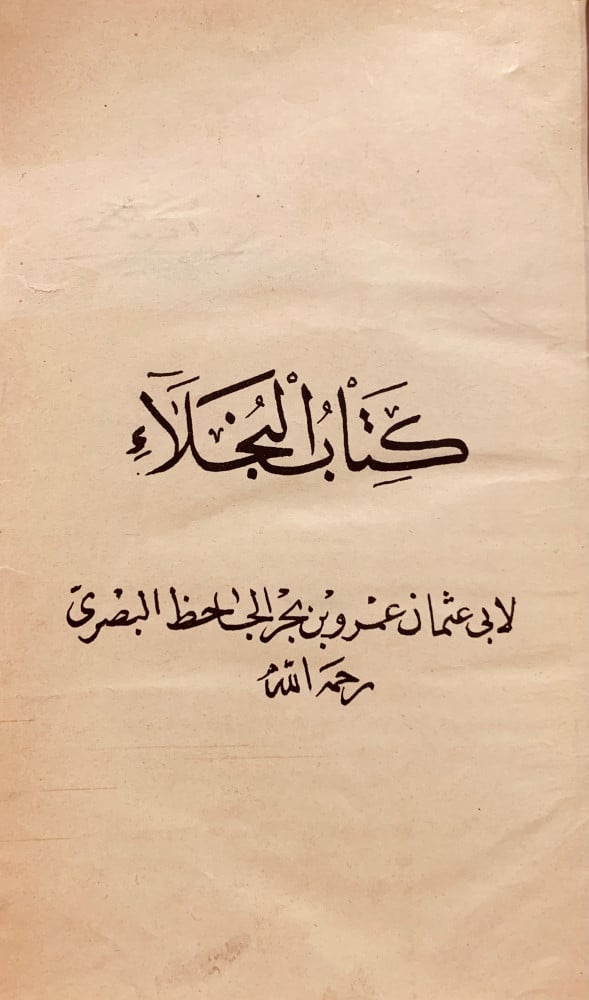 كِتَابُ الْبُخَلَاءِ
لابى عثمان عمْرو بْن بحْر الجاحظ البصْرىّ
رحمَه اللّٰهُ